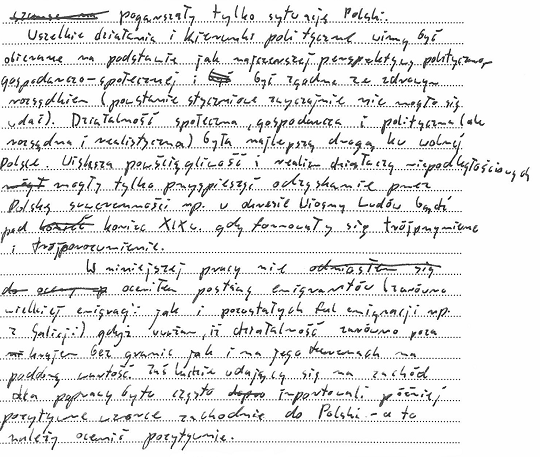 pogarszały tylko sytuację Polski.
Wszelkie działania i kierunki polityczne winny być
obierane na podstawie jak najszerszej perspektywy polityczno
gospodarczo-społecznej i być zgodne ze zdrowym
rozsądkiem (powstanie styczniowe zwyczajnie nie mogło się
udać). Działalność społeczna, gospodarcza i polityczna (ale
rozsądna i realistyczna) była najlepszą drogą ku wolnej
Polsce. Większa powściągliwość i realizm działaczy niepodległościowych
mogły tylko przyspieszyć odzyskanie przez
Polskę suwerenności np. w okresie Wiosny Ludów bądź
pod koniec XIX w. gdy formowały się trójprzymierze
i trójporozumienie.
W niniejszej pracy nie odniosłem się
do oceny oceniłem postawę emigrantów (zarówno
wielkiej emigracji jak i pozostałych fal emigracji np.
z Galicji) gdyż uważam, iż działalność zarówno poza
krajem bez granic jak i na jego terenach ma
podobną wartość zaś ludzie udający się na zachód
dla poprawy bytu często importowali później
pozytywne wzorce zachodnie do Polski - a to
należy ocenić pozytywnie.